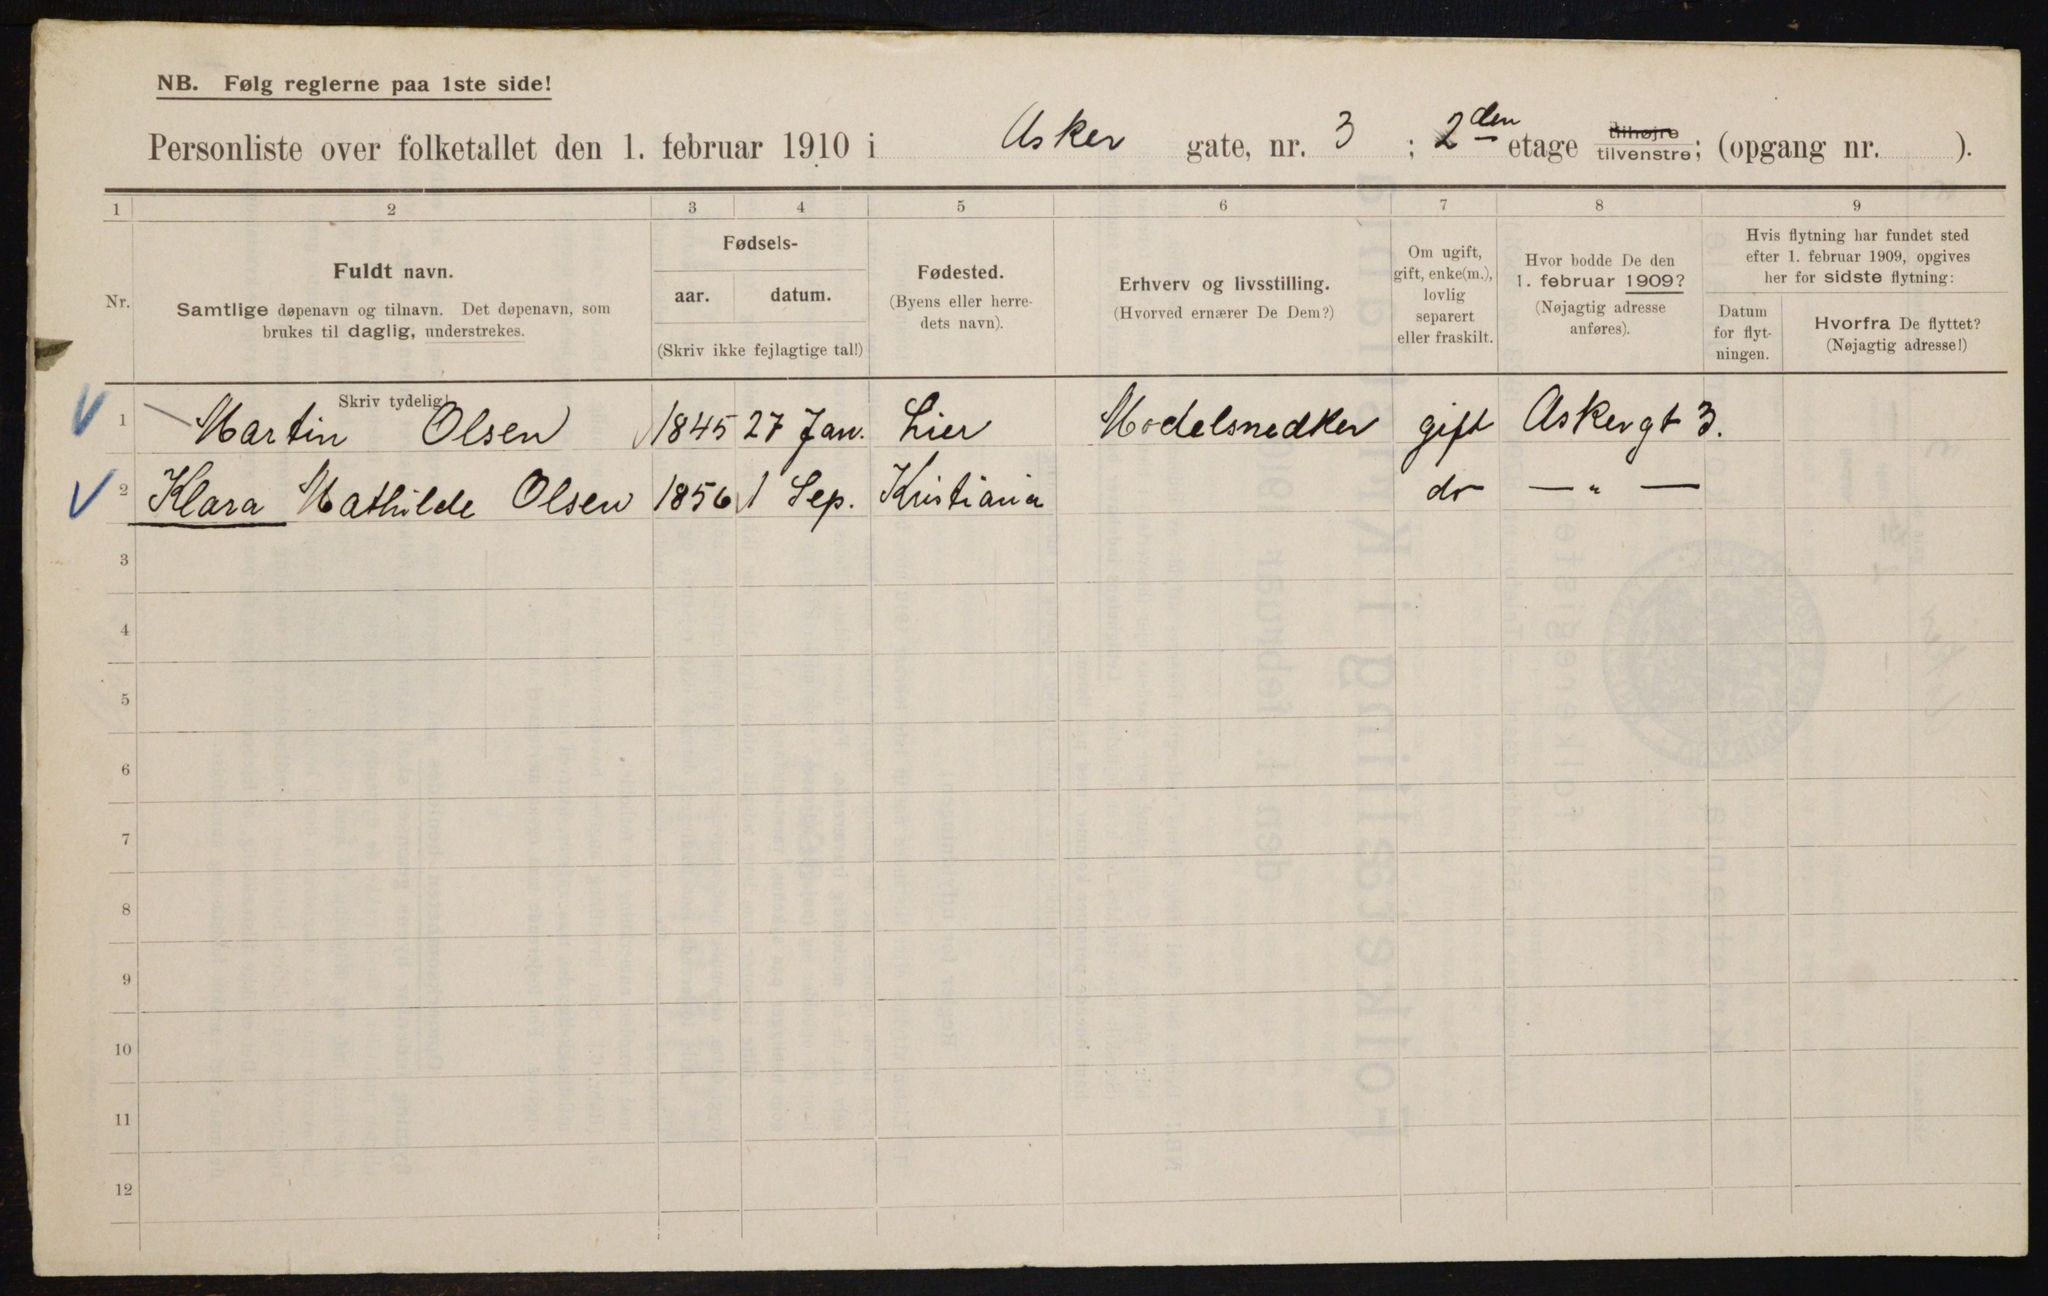 NB. Følg reglerne paa 1ste side!
Personliste over folketallet den 1. februar 1910 i Asker gate, nr. 3 ; 2den etage tilhøjre tilvenstre; (opgang nr. ).
1 2 3 4 5 6 7 8 9
Nr.
Fuldt navn.
Samtlige døpenavn og tilnavn. Det døpenavn, som
brukes til daglig, understrekes.
Skriv tydelig!
Fødsels-
aar. datum.
(Skriv ikke fejlagtige tal!)
Fødested.
(Byens eller herre-
dets navn).
Erhverv og livsstilling.
(Hvorved ernærer De Dem?)
Om ugift,
gift, enke(m.),
lovlig
separert
eller fraskilt.
Hvor bodde De den
1. februar 1909?
(Nøjagtig adresse
anføres).
Hvis flytning har fundet sted
efter 1. februar 1909, opgives
her for sidste flytning:
Datum
for flyt-
ningen.
Hvorfra De flyttet?
(Nøjagtig adresse!)
1 Martin Olsen 1845 27 Jan. Lier Modelsnedker gift Askergt 3.
2 Klara Mathilde Olsen 1856 1 Sep. Kristiania do — „ —
3
4
5
6
7
8
9
10
11
12